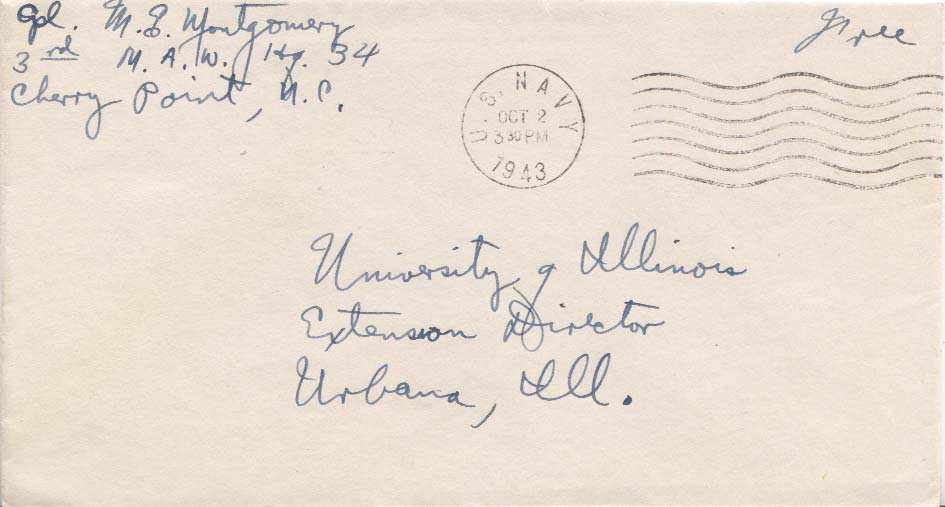 Cpl. M. E. Montgomery
3rd M. A. W. Hq. 34
Cherry Point, N. C.
Free
U. S. NAVY
OCT 2
3 30 PM
1943
University of Illinois
Extension Director
Urbana, Ill.